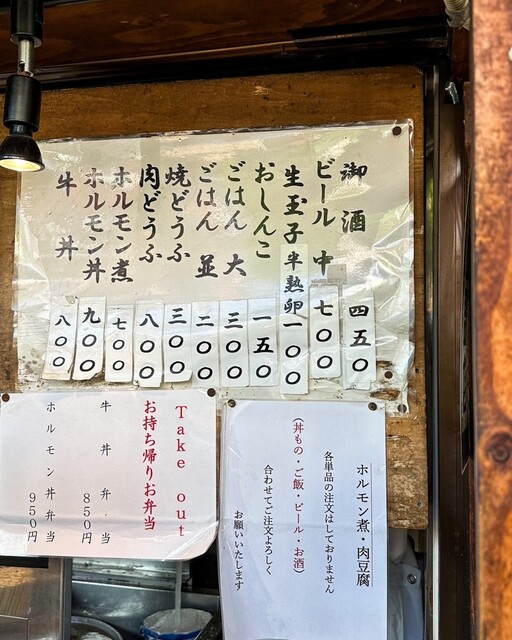 御酒 四五〇
ビール 中 七〇〇
生玉子 半熟卵 一〇〇
おしんこ 一五〇
ごはん 大 三〇〇
ごはん 並 二〇〇
焼どうふ 三〇〇
肉どうふ 八〇〇
ホルモン煮 七〇〇
ホルモン丼 九〇〇
牛丼 八〇〇
Take out
お持ち帰りお弁当
牛丼弁当 850円
ホルモン丼弁当 950円
ホルモン煮・肉豆腐
各単品の注文はしておりません
(丼もの・ご飯・ビール・お酒)
合わせてご注文よろしく
お願いいたします